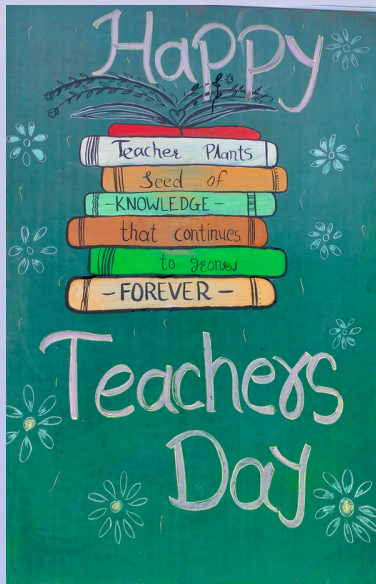 Happy
Teacher Plants
Seed of
-KNOWLEDGE-
that continues
to grow
-FOREVER-
Teachers
Day